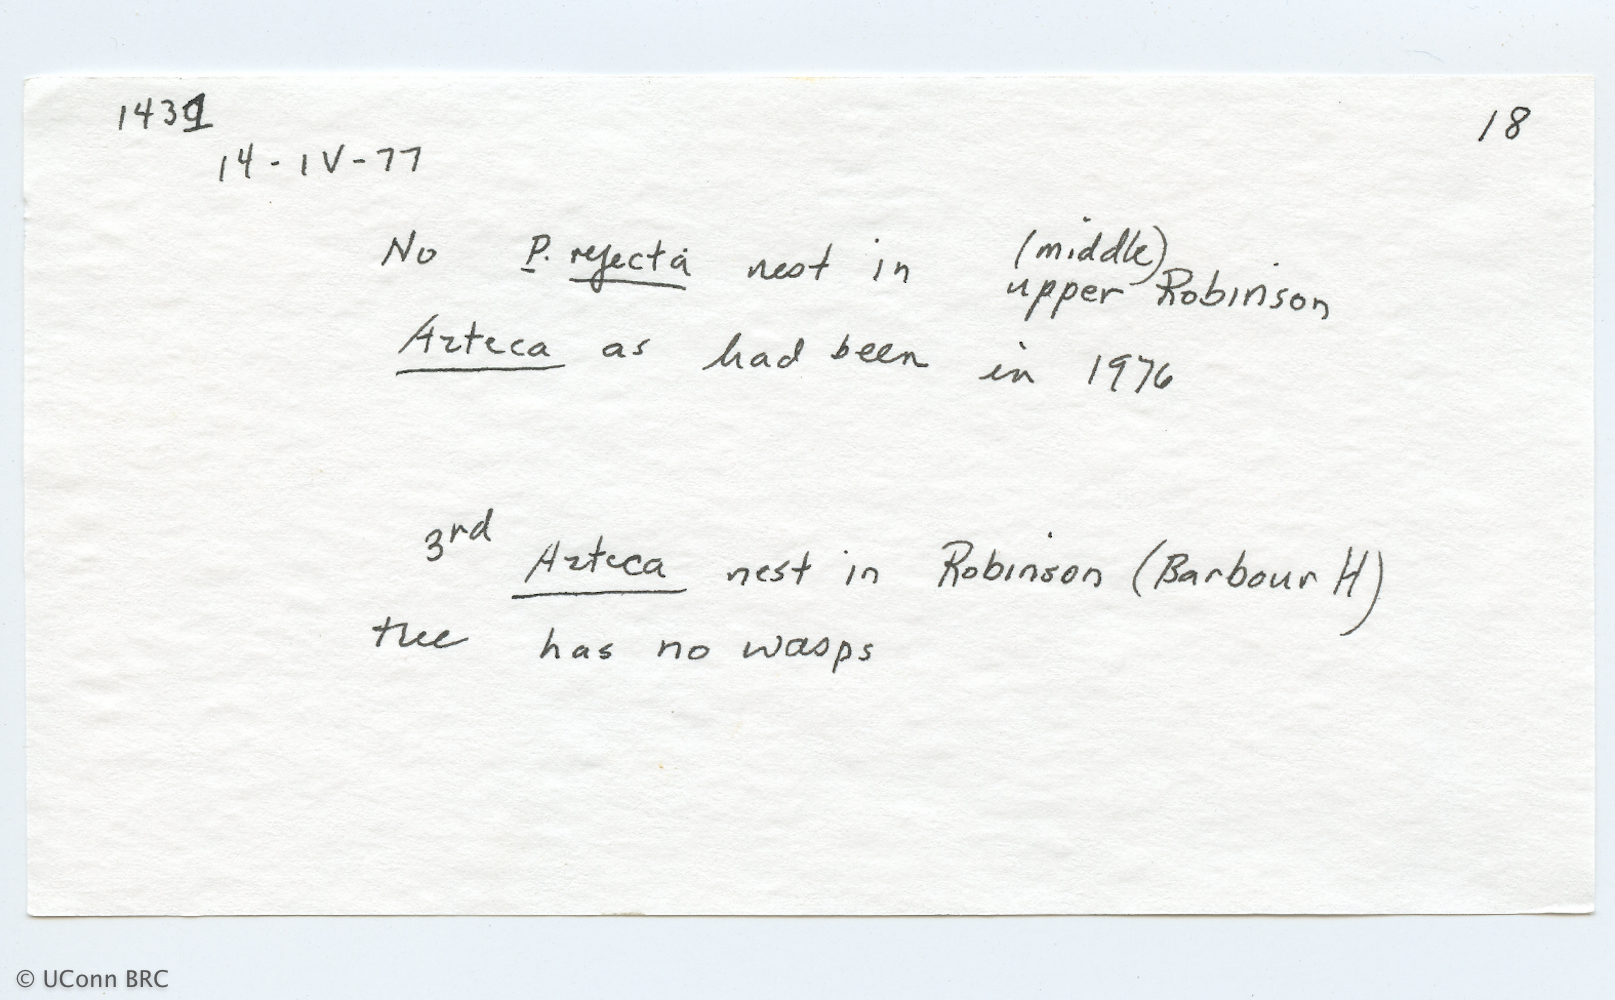 1431
18
14-IV-77
No P. rejecta nest in (middle)
upper Robinson
Azteca as had been in 1976
3rd Azteca nest in Robinson (Barbour H)
tree has no wasps
© UConn BRC